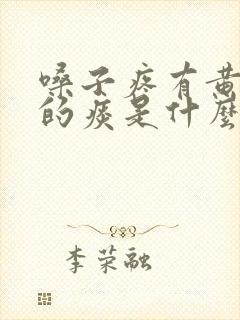 嗓子疼有黄
的痰是什麼
李荣融